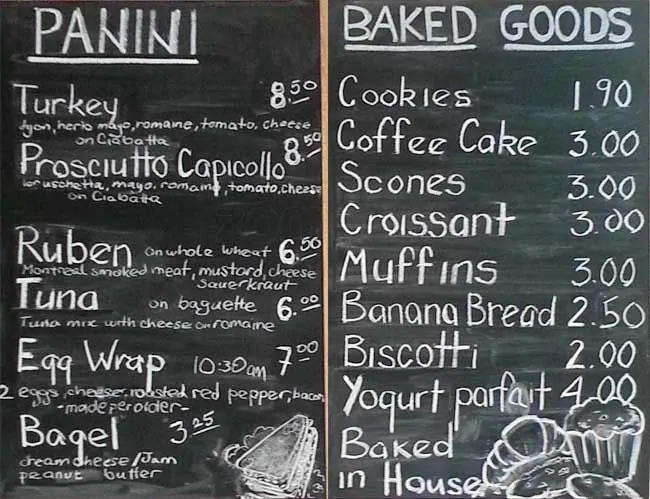 PANINI
Turkey 8.50
dijon, herb mayo, romaine, tomato, cheese
on Ciabatta
Prosciutto Capicollo 8.50
bruschetta, mayo, romaine, tomato, cheese
on Ciabatta
Ruben on whole wheat 6.50
Montreal smoked meat, mustard, cheese
Sauerkraut
Tuna on baguette 6.00
Tuna mix with cheese on romaine
Egg Wrap 10:30am 7.00
2 eggs, cheese, roasted red pepper, bacon
-made per order-
Bagel 3.25
cream cheese/Jam
peanut butter
BAKED GOODS
Cookies 1.90
Coffee Cake 3.00
Scones 3.00
Croissant 3.00
Muffins 3.00
Banana Bread 2.50
Biscotti 2.00
Yogurt parfait 4.00
Baked
in House